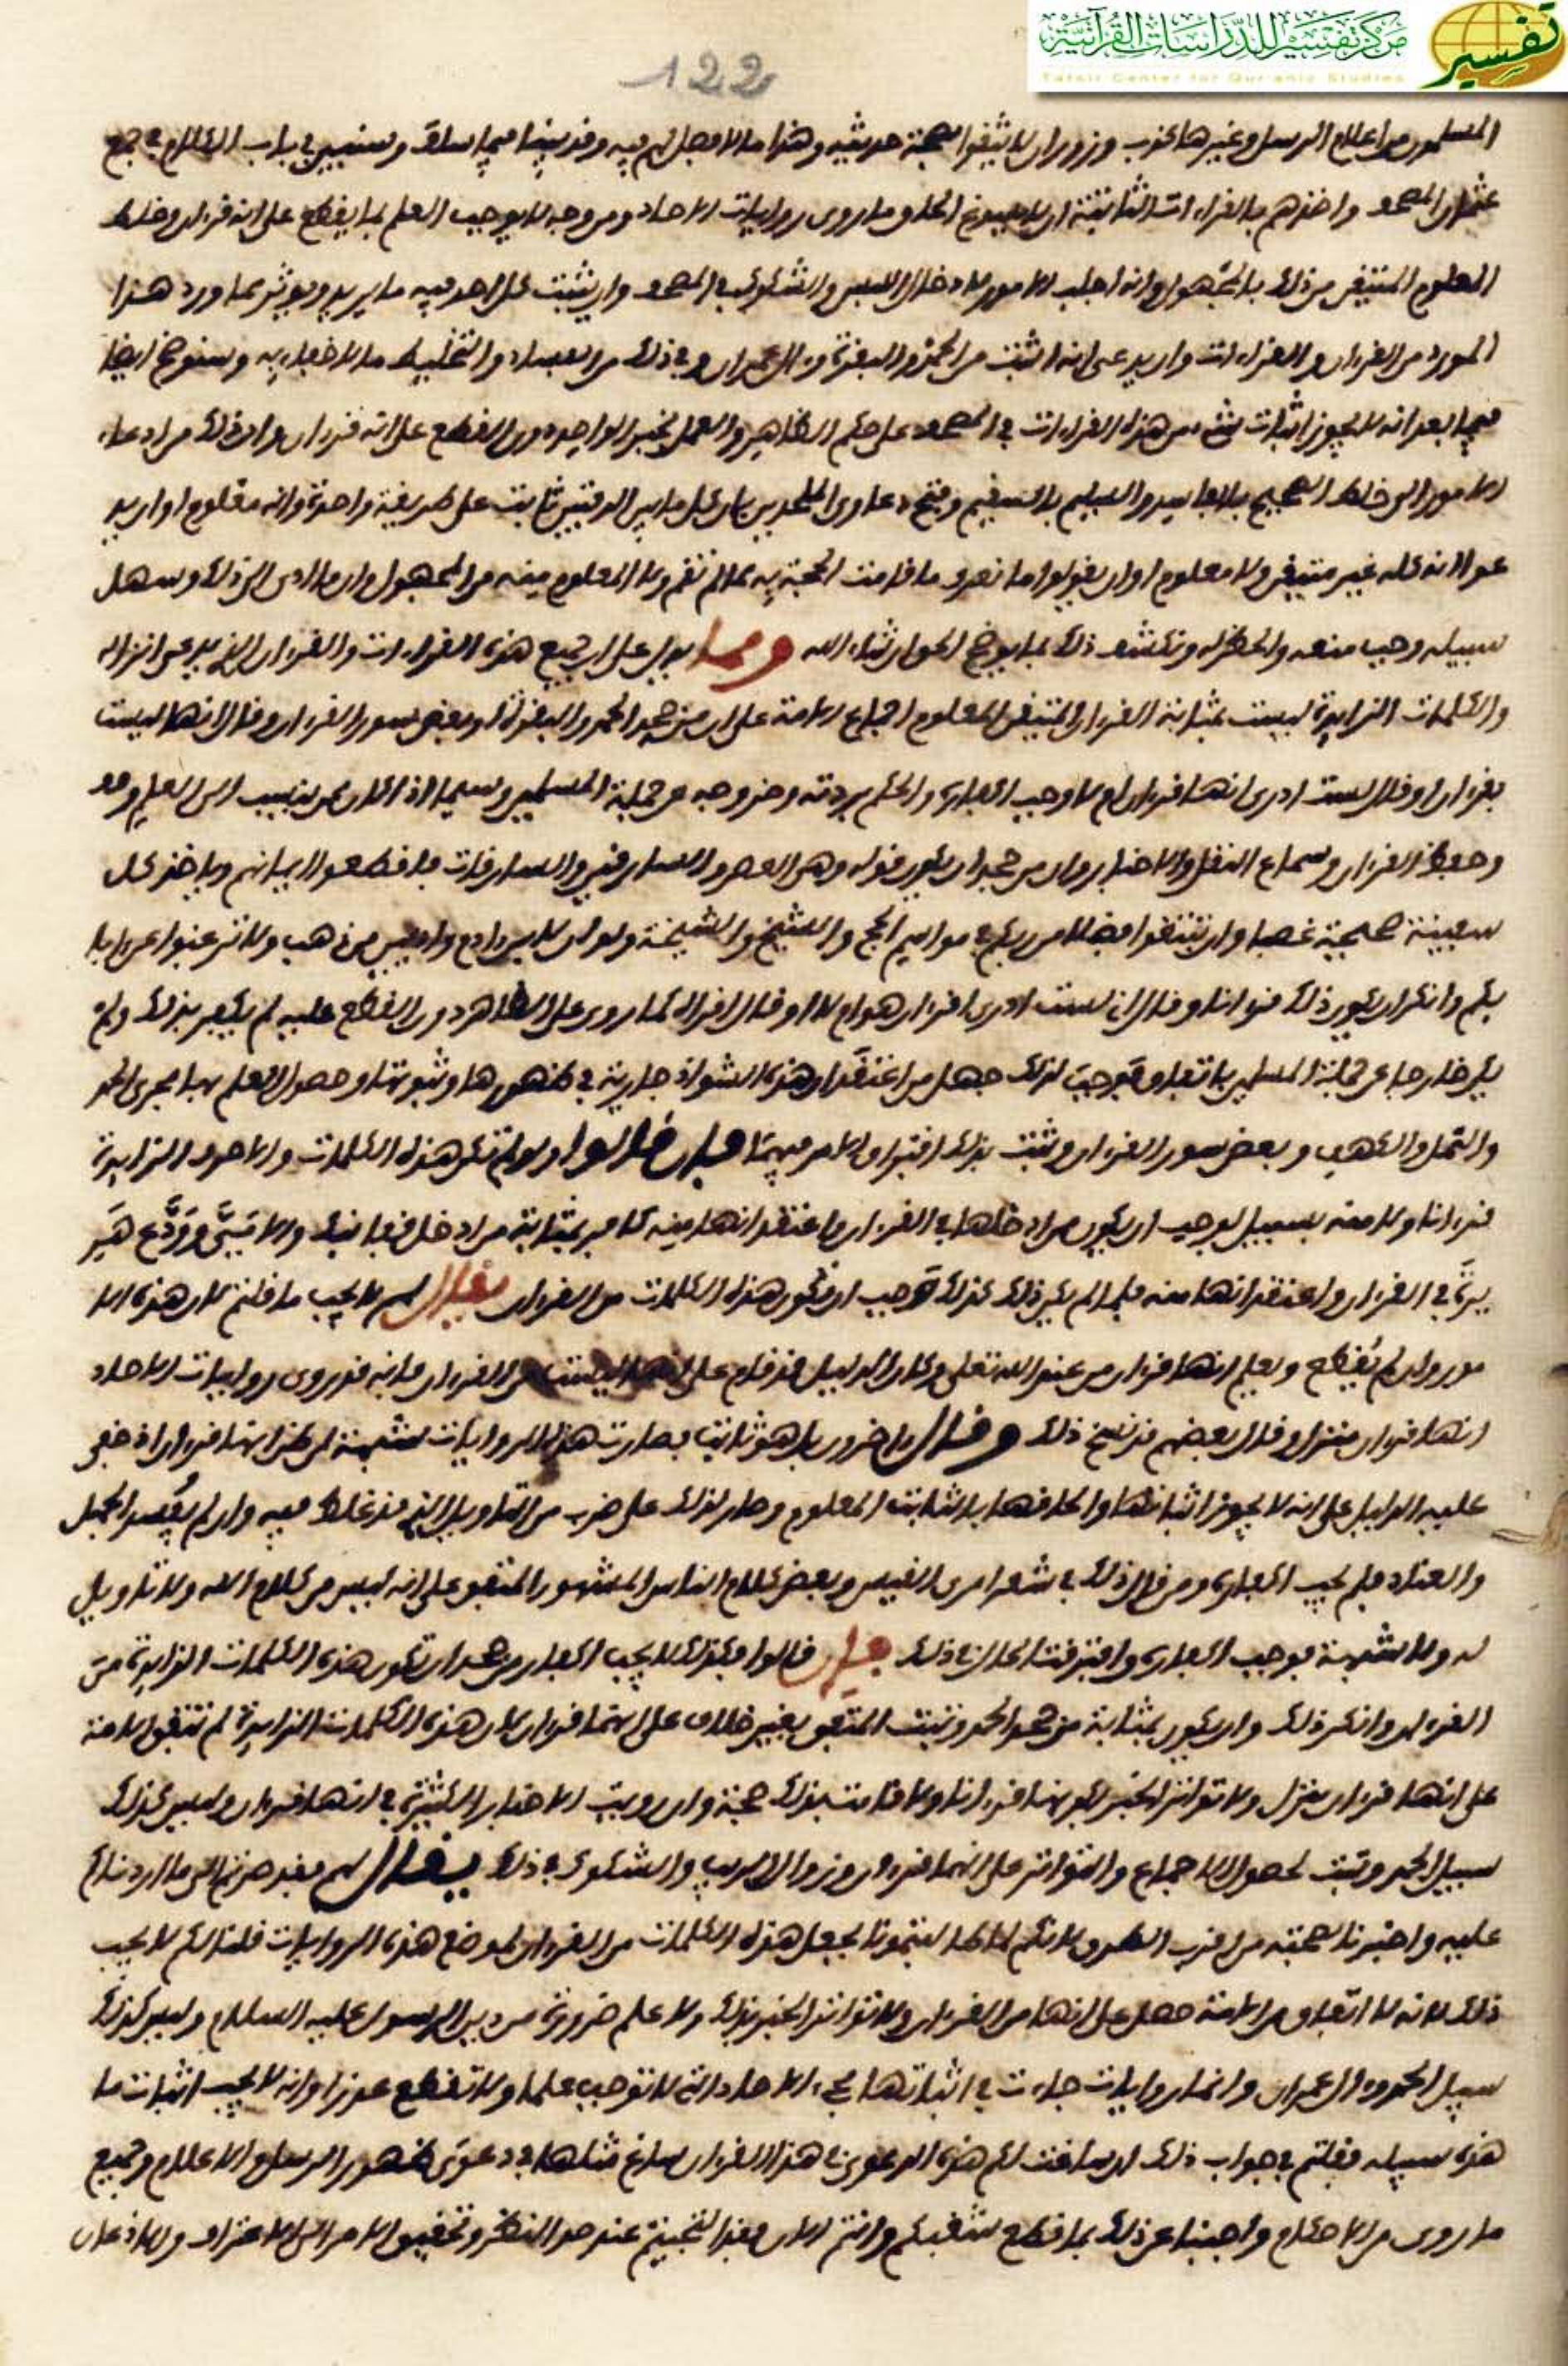 مركز تفسير للدراسات القرآنية
Tafsir Center for Qur'anic Studies
تفسير
122
المسلمون من اعلام الرسل وغيرها كذب وزور ان لا يثقوا بصحة حديثه وهذا ما لا فصل لهم فيه وقد بينا فيما سلف وسنبين في باب الكلام في جمع
عثمان المصحف واخذهم بالقراءات الثابتة ان لا يسوغ الحاق ما روى روايات الاحاد ومن وجه لا يوجب العلم بما يقطع على انه قرءان وخلط
المعلوم المتيقن من ذلك بالمجهول وانه اجلب الامور لادخال اللبس والشكوك في المصحف وان يثبت كل احد فيه ما يريد ويوثر مما ورد هذا
المورد من القرءان والقراءات وان يدعى انه اثبت من الحمد والبقرة وءال عمران وفي ذلك من الفساد والتخليط ما لا خفاء به وسنوضح ايضا
فيما بعد انه لا يجوز اثبات شئ من هذه القراءات في المصحف على حكم الظاهر والعمل بخبر الواحد دون القطع على انه قرءان وان ذلك من ادعاء
الامور الى خلط الصحيح بالفاسد والسليم بالسقيم وفتح دعاوى الملحدين بان كل ما بين الدفتين ثابت على طريقة واحدة وانه معلوم او ان يد
عوا انه كله غير متيقن ولا معلوم او ان يقولوا ما نعرف ما قامت الحجة به مما لم تقم ولا المعلوم منه من المجهول وان ما ادى الى ذلك وسهل
سبيله وجب منعه والحظر له ونكشف ذلك بما يوضح الحق ان شاء الله ومما يدل على ان جميع هذه القراءات والقرءان الذي يدعى انزاله
والكلمات الزايدة ليست بمثابة القرءان المتيقن المعلوم اجماع الامة على ان من جحد الحمد والبقرة او بعض سور القرءان وقال انها ليست
بقرءان او قال لست ادرى انها قرءان ام لا وجب اكفاره والحكم بردته وخروجه عن جملة المسلمين ولاسيما اذا كان ممن ينسب الى العلم
وحفظ القرءان وسماع النقل والاخبار وان من جحد ان يكون قوله وهى العصر والسارقين والسارقات فاقطعوا ايمانهم وياخذ كل
سفينة صحيحة غصبا وان تبتغوا فضلا من ربكم في مواسم الحج والشيخ والشيخة ولو ان لابن ءادم واديين من ذهب ولا ترغبوا عن ءابا
يكم وانكر ان يكون ذلك قرءانا وقال انى لست ادرى اقرءان هو ام لا او قال اقراه كما روى على الظاهر دون القطع عليه لم يكفر بذلك ولم
يكن خارجا عن جملة المسلمين باتفاق فوجب لذلك جهل من اعتقد ان هذه الشواذ جارية في ظهورها وثبوتها وحصول العلم بها مجرى الحمد
والنمل والكهف وبعض سور القرءان وثبت بذلك افتراق الامر فيهما فان قالوا ولو لم تكن هذه الكلمات والاحرف الزايدة
قرءانا ولا منه بسبيل لوجب ان يكون من ادخلها في القرءان واعتقد انها منه كافر بمثابة من ادخل قفا نبك والا تبقى وودع هر
يرة في القرءان واعتقد انها منه فلما لم يكن ذلك كذلك وجب ان تكون هذه الكلمات من القرءان يقال لهم لا يجب ما قلتم لان هذه الا
مور وان لم يقطع ويعلم انها قرءان من عند الله تعلى وكان الدليل قد قام على انها ليست من القرءان فانه قد روى روايات الاحاد
انها قرءان منزل وقال بعضهم قد نسخ ذلك وقال ءاخرون بل هو ثابت فصارت هذه الروايات شبهة لمن ظن انها قرءان اذ خفى
عليه الدليل على انه لا يجوز اثباتها والحاقها بالثابت المعلوم وصار لذلك على ضرب من التاويل الذي قد غلط فيه وان لم يقصد الجهل
والعناد فلم يجب اكفاره ومن قال ذلك في شعر امرئ القيس وبعض كلام الناس المشهور المتفق على انه ليس من كلام الله ولا تاويل
له ولا شبهة فوجب اكفاره وافترقت الحال في ذلك فان قالوا فكذلك لا يجب اكفار من جحد ان تكون هذه الكلمات الزايدة من
القرءان وانكر ذلك وان يكون بمثابة من جحد الحمد وتبت المتفق بغير خلاف على انهما قرءان لان هذه الكلمات الزايدة لم تتفق الامة
على انها قرءان منزل ولا تواتر الخبر بكونها قرءانا ولا قامت بذلك حجة وان رويت الاخبار الكثيرة في انها قرءان وليس كذلك
سبيل الحمد وتبت لحصول الاجماع والتواتر على انهما قرءان وزوال الريب والشكوك في ذلك يقال لهم فقد صرتم الى ما اردناكم
عليه واخبرنا بصحته من اقرب الطرق لانكم لما طالبتمونا بجعل هذه الكلمات من القرءان لموضع هذه الروايات قلنا لكم لا يجب
ذلك لانه لا اتفاق من الامة حصل على انها من القرءان ولا تواتر الخبر بذلك ولا علم ضرورة من دين الرسول عليه السلام وليس كذلك
سبيل الحمد وءال عمران وانما روايات جاءت في اثباتها مجيء الاحاد التي لا توجب علما ولا تقطع عذرا وانه لا يجب اثبات ما
هذه سبيله فقلتم في جواب ذلك ان ساغت لكم هذه الدعوى في هذا القرءان ساغ مثلها في دعوى ظهور الرسل والاعلام وجميع
ما روى من الاحكام واجبنا عن ذلك بما قطع شغبكم وانتم الان عند صد النظر وتحقيق الامر الى الاعتراف والاذعان